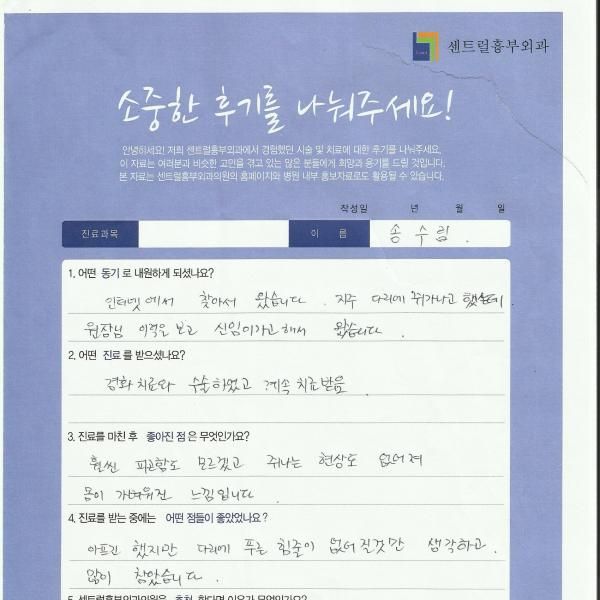 센트럴흉부외과
소중한 후기를 나눠주세요!
안녕하세요! 저희 센트럴흉부외과에서 경험했던 시술 및 치료에 대한 후기를 나눠주세요.
이 자료는 여러분과 비슷한 고민을 겪고 있는 많은 분들에게 희망과 용기를 드릴 것입니다.
본 자료는 센트럴흉부외과의원의 홈페이지와 병원 내부 홍보자료로도 활용될 수 있습니다.
작성일 년 월 일
진료과목 이 름 송수림.
1. 어떤 동기로 내원하게 되셨나요?
인터넷에서 찾아서 왔습니다. 자주 다리에 쥐가나고 했는데
원장님 이력을 보고 신임이가고 해서 왔습니다.
2. 어떤 진료를 받으셨나요?
경화치료와 수술하였고 계속 치료받음
3. 진료를 마친 후 좋아진 점은 무엇인가요?
훨씬 피곤함도 모르겠고 쥐나는 현상도 없어져
몸이 가벼워진 느낌입니다
4. 진료를 받는 중에는 어떤 점들이 좋았었나요?
아프긴 했지만 다리에 푸른 힘줄이 없어질것만 생각하고.
많이 참았습니다.
5. 센트럴흉부외과의원을 추천 한다면 이유가 무엇인가요?